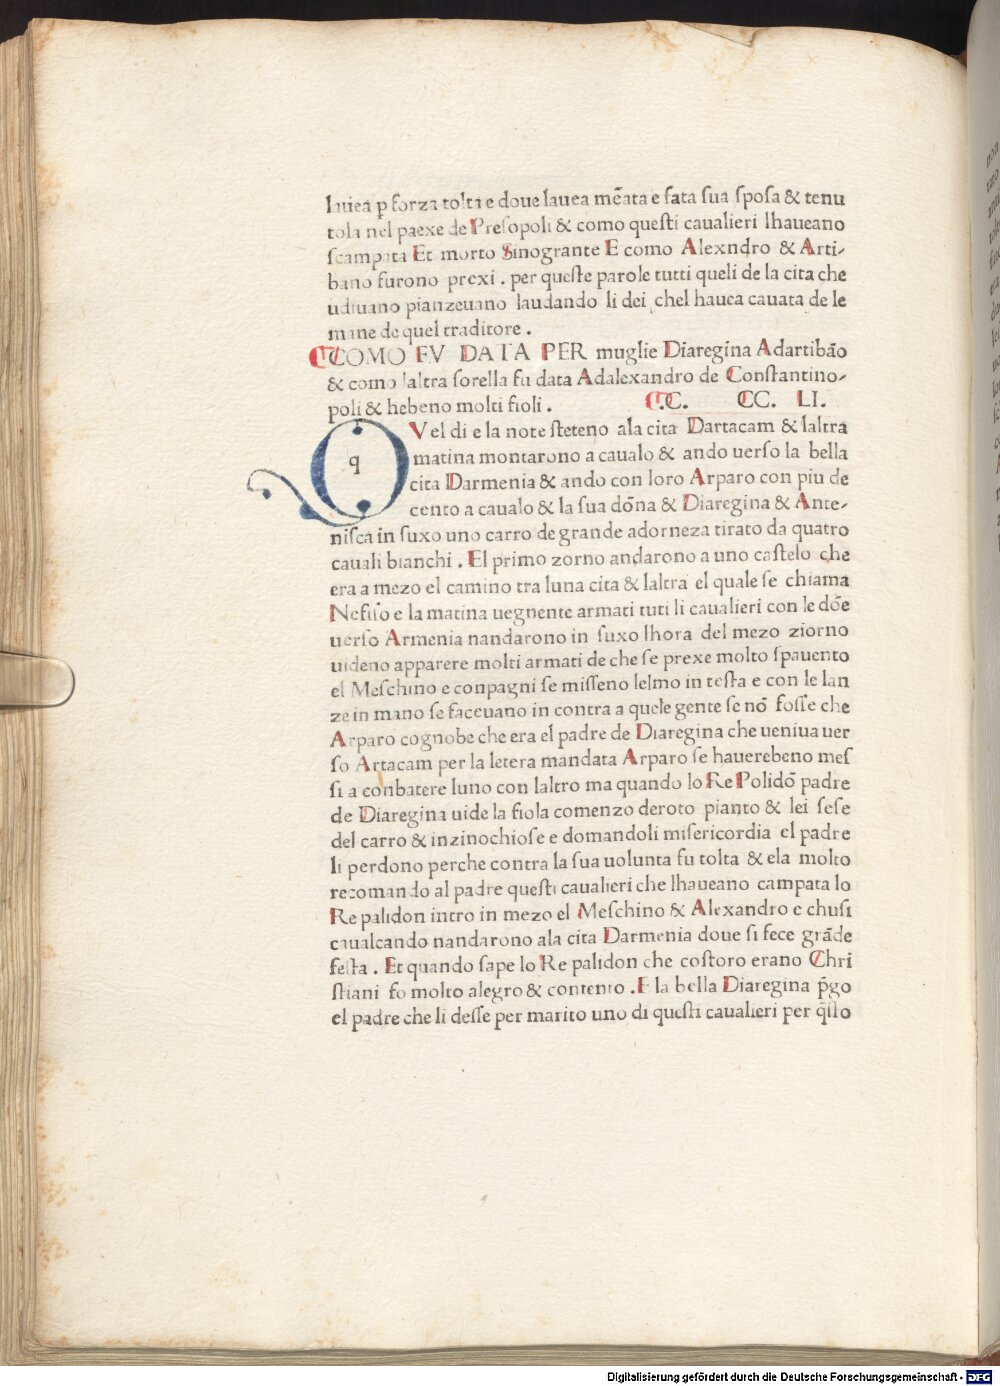 lauea ꝑ forza tolta e doue lauea mẽata e fata sua sposa & tenu
tola nel paexe de Presopoli & como questi caualieri lhaueano
scampata Et morto Sinogrante E como Alexndro & Arti-
bano furono prexi . per queste parole tutti queli de la cita che
udiuano pianzeuano laudando li dei chel hauea cauata de le
mane de quel traditore .
COMO FV DATA PER muglie Diaregina Adartibão
& como laltra sorella fu data Adalexandro de Constantino-
poli & hebeno molti fioli . CC. CC. LI.
q Vel di e la note steteno ala cita Dartacam & laltra
matina montarono a caualo & ando uerso la bella
cita Darmenia & ando con loro Arparo con piu de
cento a caualo & la sua dõna & Diaregina & Ante-
nisca in suxo uno carro de grande adorneza tirato da quatro
cauali bianchi . El primo zorno andarono a uno castelo che
era a mezo el camino tra luna cita & laltra el quale se chiama
Nefiso e la matina uegnente armati tuti li caualieri con le dõe
uerso Armenia nandarono in suxo lhora del mezo ziorno
uideno apparere molti armati de che se prexe molto spauento
el Meschino e conpagni se misseno lelmo in testa e con le lan
ze in mano se faceuano in contra a quele gente se nõ fosse che
Arparo cognobe che era el padre de Diaregina che ueniua uer
so Artacam per la letera mandata Arparo se hauerebeno mes
si a conbatere luno con laltro ma quando lo Re Polidõ padre
de Diaregina uide la fiola comenzo deroto pianto & lei sese
del carro & inzinochiose e domandoli misericordia el padre
li perdono perche contra la sua uolunta fu tolta & ela molto
recomando al padre questi caualieri che lhaueano campata lo
Re palidon intro in mezo el Meschino & Alexandro e chusi
caualcando nandarono ala cita Darmenia doue si fece grãde
festa . Et quando sape lo Re palidon che costoro erano Chri
stiani fo molto alegro & contento . E la bella Diaregina p̃go
el padre che li desse per marito uno di questi caualieri per q̃sto
Digitalisierung gefördert durch die Deutsche Forschungsgemeinschaft - DFG